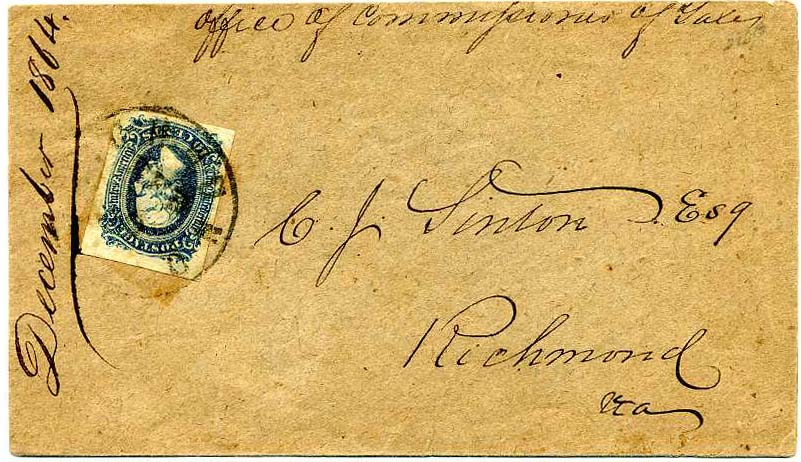 Office of Commissioner of Sales
December 1864.
C. J. Sinton Esq
Richmond
Va
POSTAGE